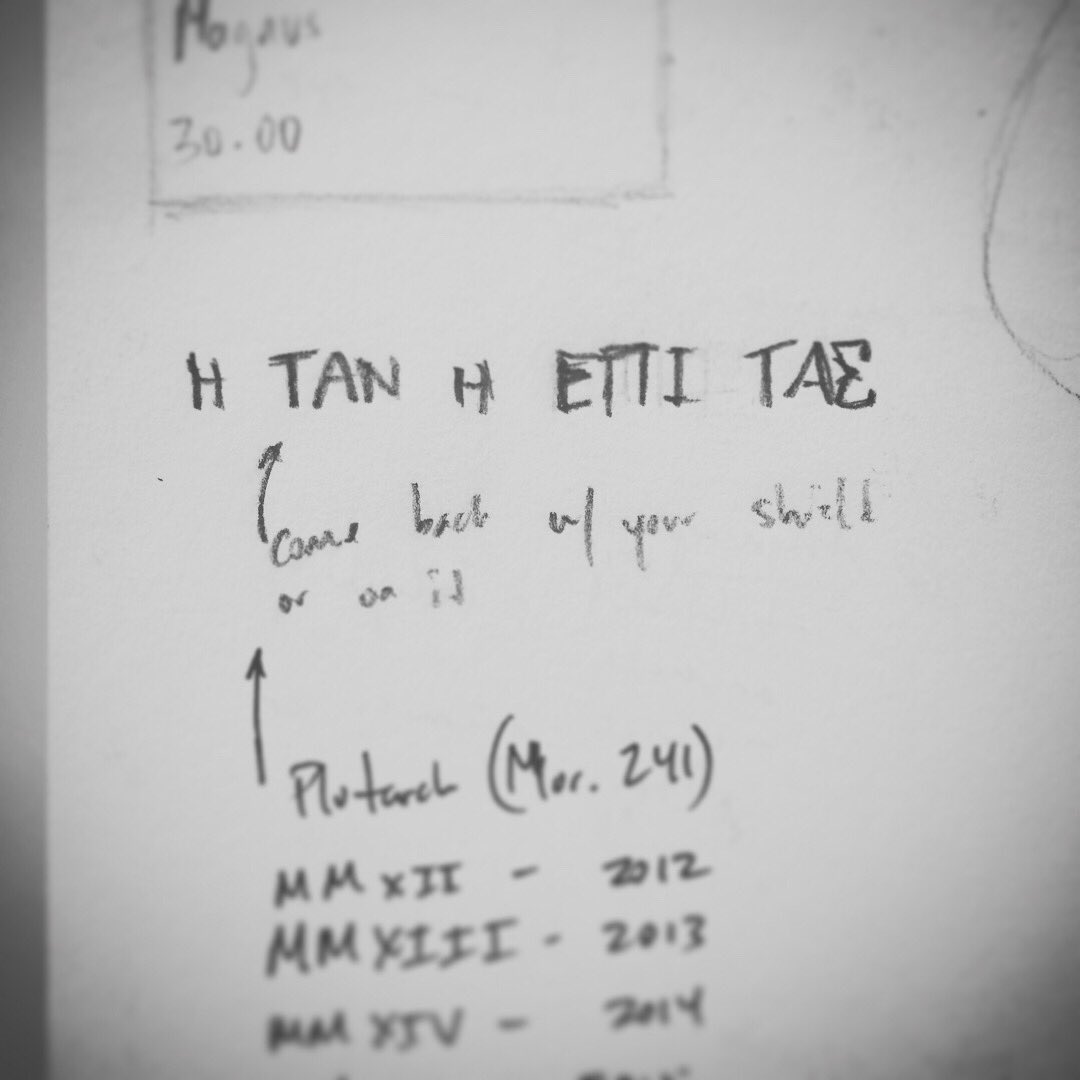 Magnus
30.00
Η ΤΑΝ Η ΕΠΙ ΤΑΣ
Come back w/ your shield
or on it
Plutarch (Mor. 241)
MMXII - 2012
MMXIII - 2013
MMXIV - 2014